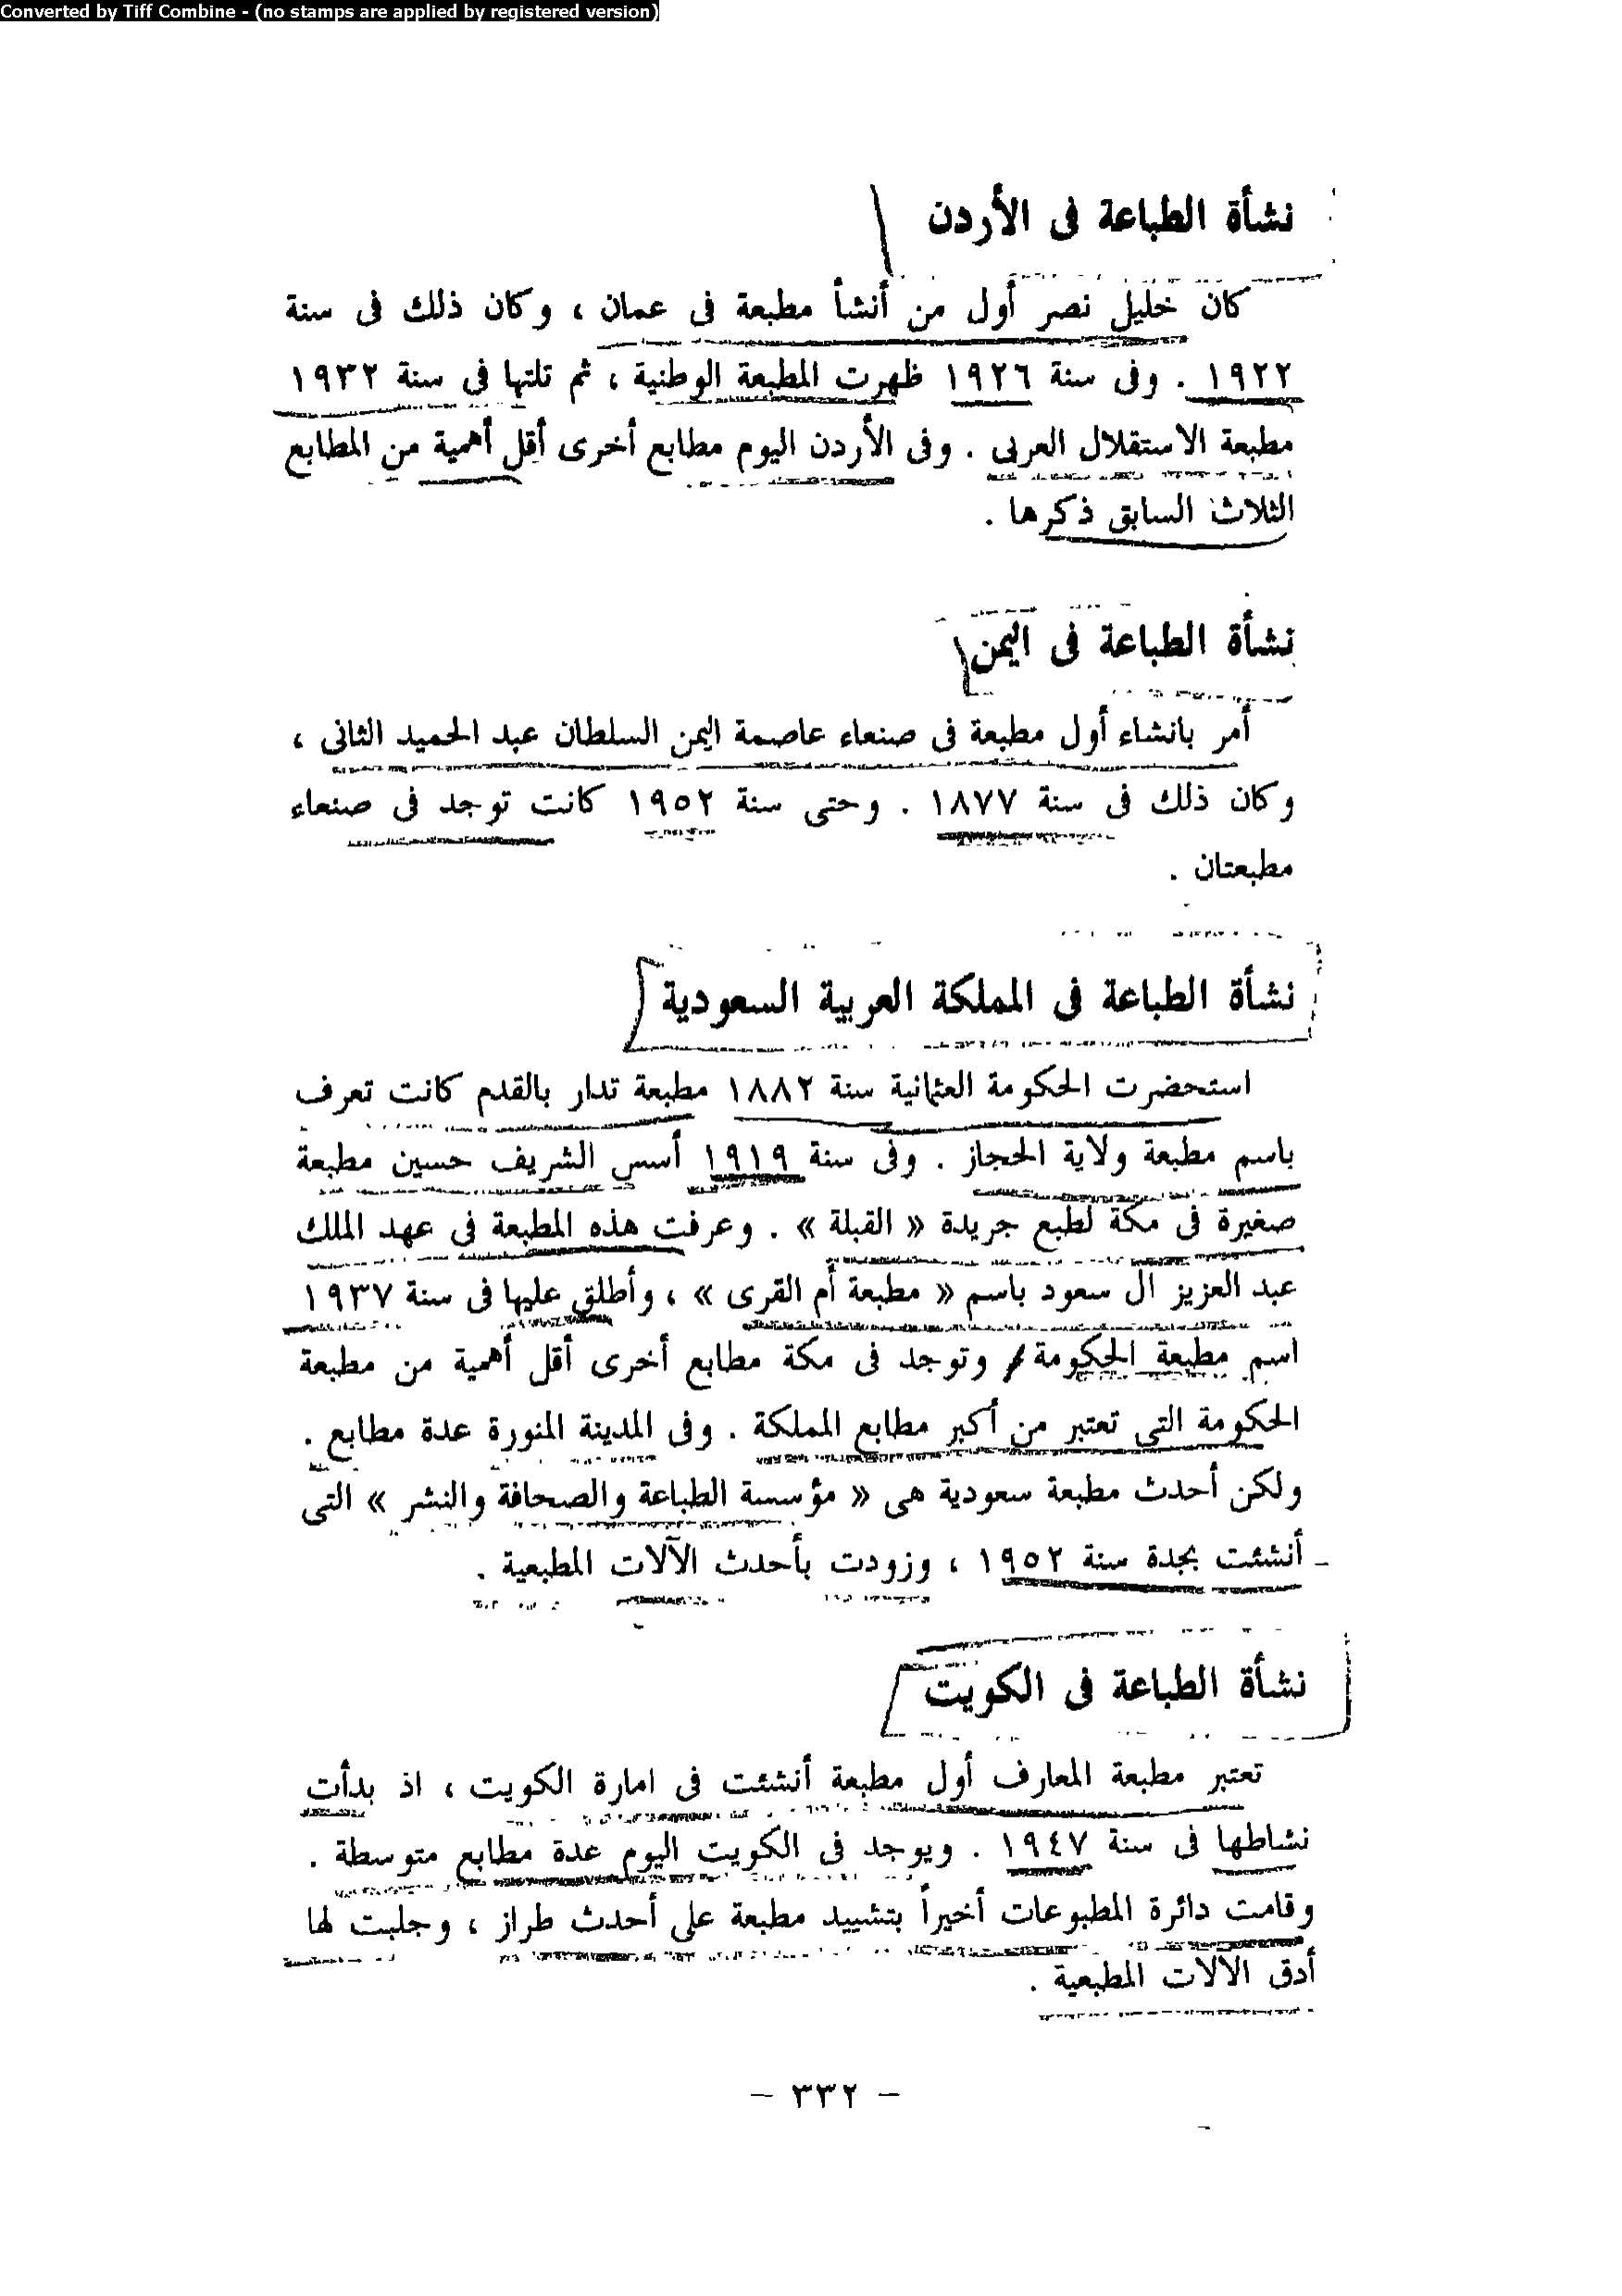 Converted by Tiff Combine - (no stamps are applied by registered version)
نشأة الطباعة فى الأردن
كان خليل نصر أول من أنشأ مطبعة فى عمان ، وكان ذلك فى سنة
١٩٢٢ . وفى سنة ١٩٢٦ ظهرت المطبعة الوطنية ، ثم تلتها فى سنة ١٩٣٢
مطبعة الاستقلال العربى . وفى الأردن اليوم مطابع أخرى أقل أهمية من المطابع
الثلاث السابق ذكرها .
نشأة الطباعة فى اليمن
أمر بانشاء أول مطبعة فى صنعاء عاصمة اليمن السلطان عبد الحميد الثانى ،
وكان ذلك فى سنة ١٨٧٧ . وحتى سنة ١٩٥٢ كانت توجد فى صنعاء
مطبعتان .
نشأة الطباعة فى المملكة العربية السعودية
استحضرت الحكومة العثمانية سنة ١٨٨٢ مطبعة تدار بالقدم كانت تعرف
باسم مطبعة ولاية الحجاز . وفى سنة ١٩١٩ أسس الشريف حسين مطبعة
صغيرة فى مكة لطبع جريدة « القبلة » . وعرفت هذه المطبعة فى عهد الملك
عبد العزيز ال سعود باسم « مطبعة أم القرى » ، وأطلق عليها فى سنة ١٩٣٧
اسم مطبعة الحكومة / وتوجد فى مكة مطابع أخرى أقل أهمية من مطبعة
الحكومة التى تعتبر من أكبر مطابع المملكة . وفى المدينة المنورة عدة مطابع .
ولكن أحدث مطبعة سعودية هى « مؤسسة الطباعة والصحافة والنشر » التى
أنشئت بجدة سنة ١٩٥٢ ، وزودت بأحدث الآلات المطبعية .
نشأة الطباعة فى الكويت
تعتبر مطبعة المعارف أول مطبعة أنشئت فى امارة الكويت ، اذ بدأت
نشاطها فى سنة ١٩٤٧ . ويوجد فى الكويت اليوم عدة مطابع متوسطة .
وقامت دائرة المطبوعات أخيراً بتشييد مطبعة على أحدث طراز ، وجلبت لها
أدق الالات المطبعية .
– ٣٣٢ –